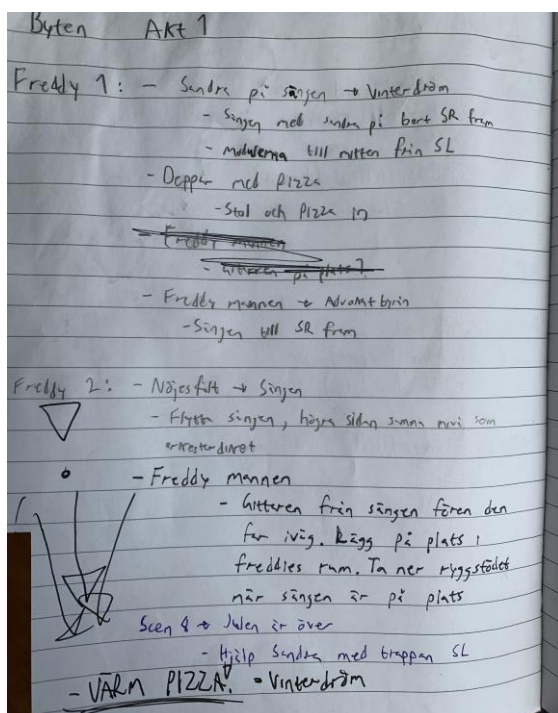 Byten Akt 1
Freddy 1: - Sandra på sängen → Vinterdröm
- Sängen med sandra på bort SR fram
- till mitten från SL
- Deppar med Pizza
- Stol och Pizza in
- Freddy mannen
- Gitarren på plats?
- Freddy mannen → Advokatbyrån
- Sängen till SR fram
Freddy 2: - Nöjesfält → Sängen
- Flytta sängen, högra sidan samma nivå som
orkesterdiket
- Freddy mannen
- Gitarren från sängen fören den
far iväg. Lägg på plats i
freddies rum. Ta ner ryggstödet
när sängen är på plats
Scen 8 → Julen är över
- Hjälp Sandra med trappan SL
- VARM PIZZA! • Vinterdröm